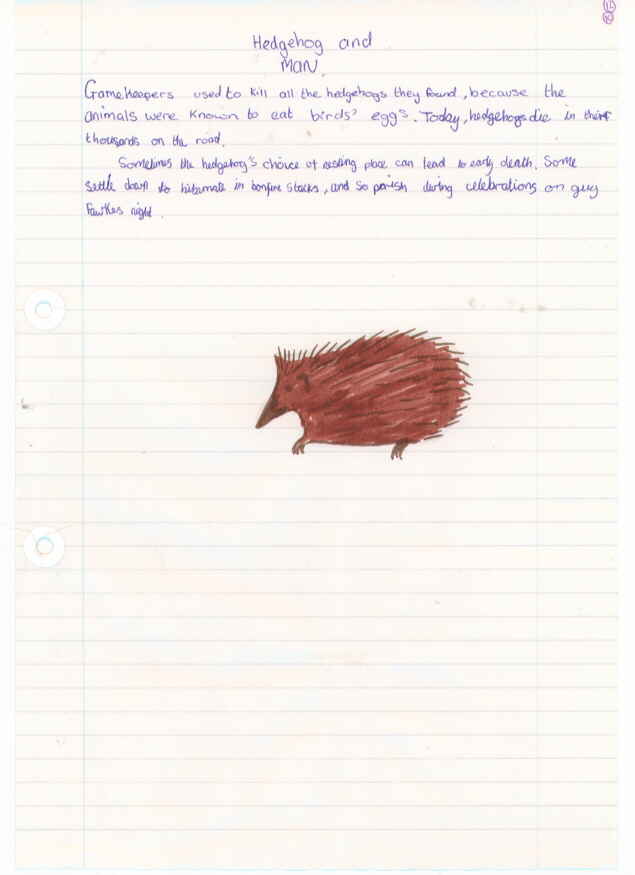 Hedgehog and
MAN.
Gamekeepers used to kill all the hedgehogs they found, because the
animals were known to eat birds' eggs. Today, hedgehogs die in their
thousands on the road.
Sometimes the hedgehog's choice of resting place can lead to early death. Some
settle down to hibernate in bonfire stacks, and so perish during celebrations on guy
Fawkes night.